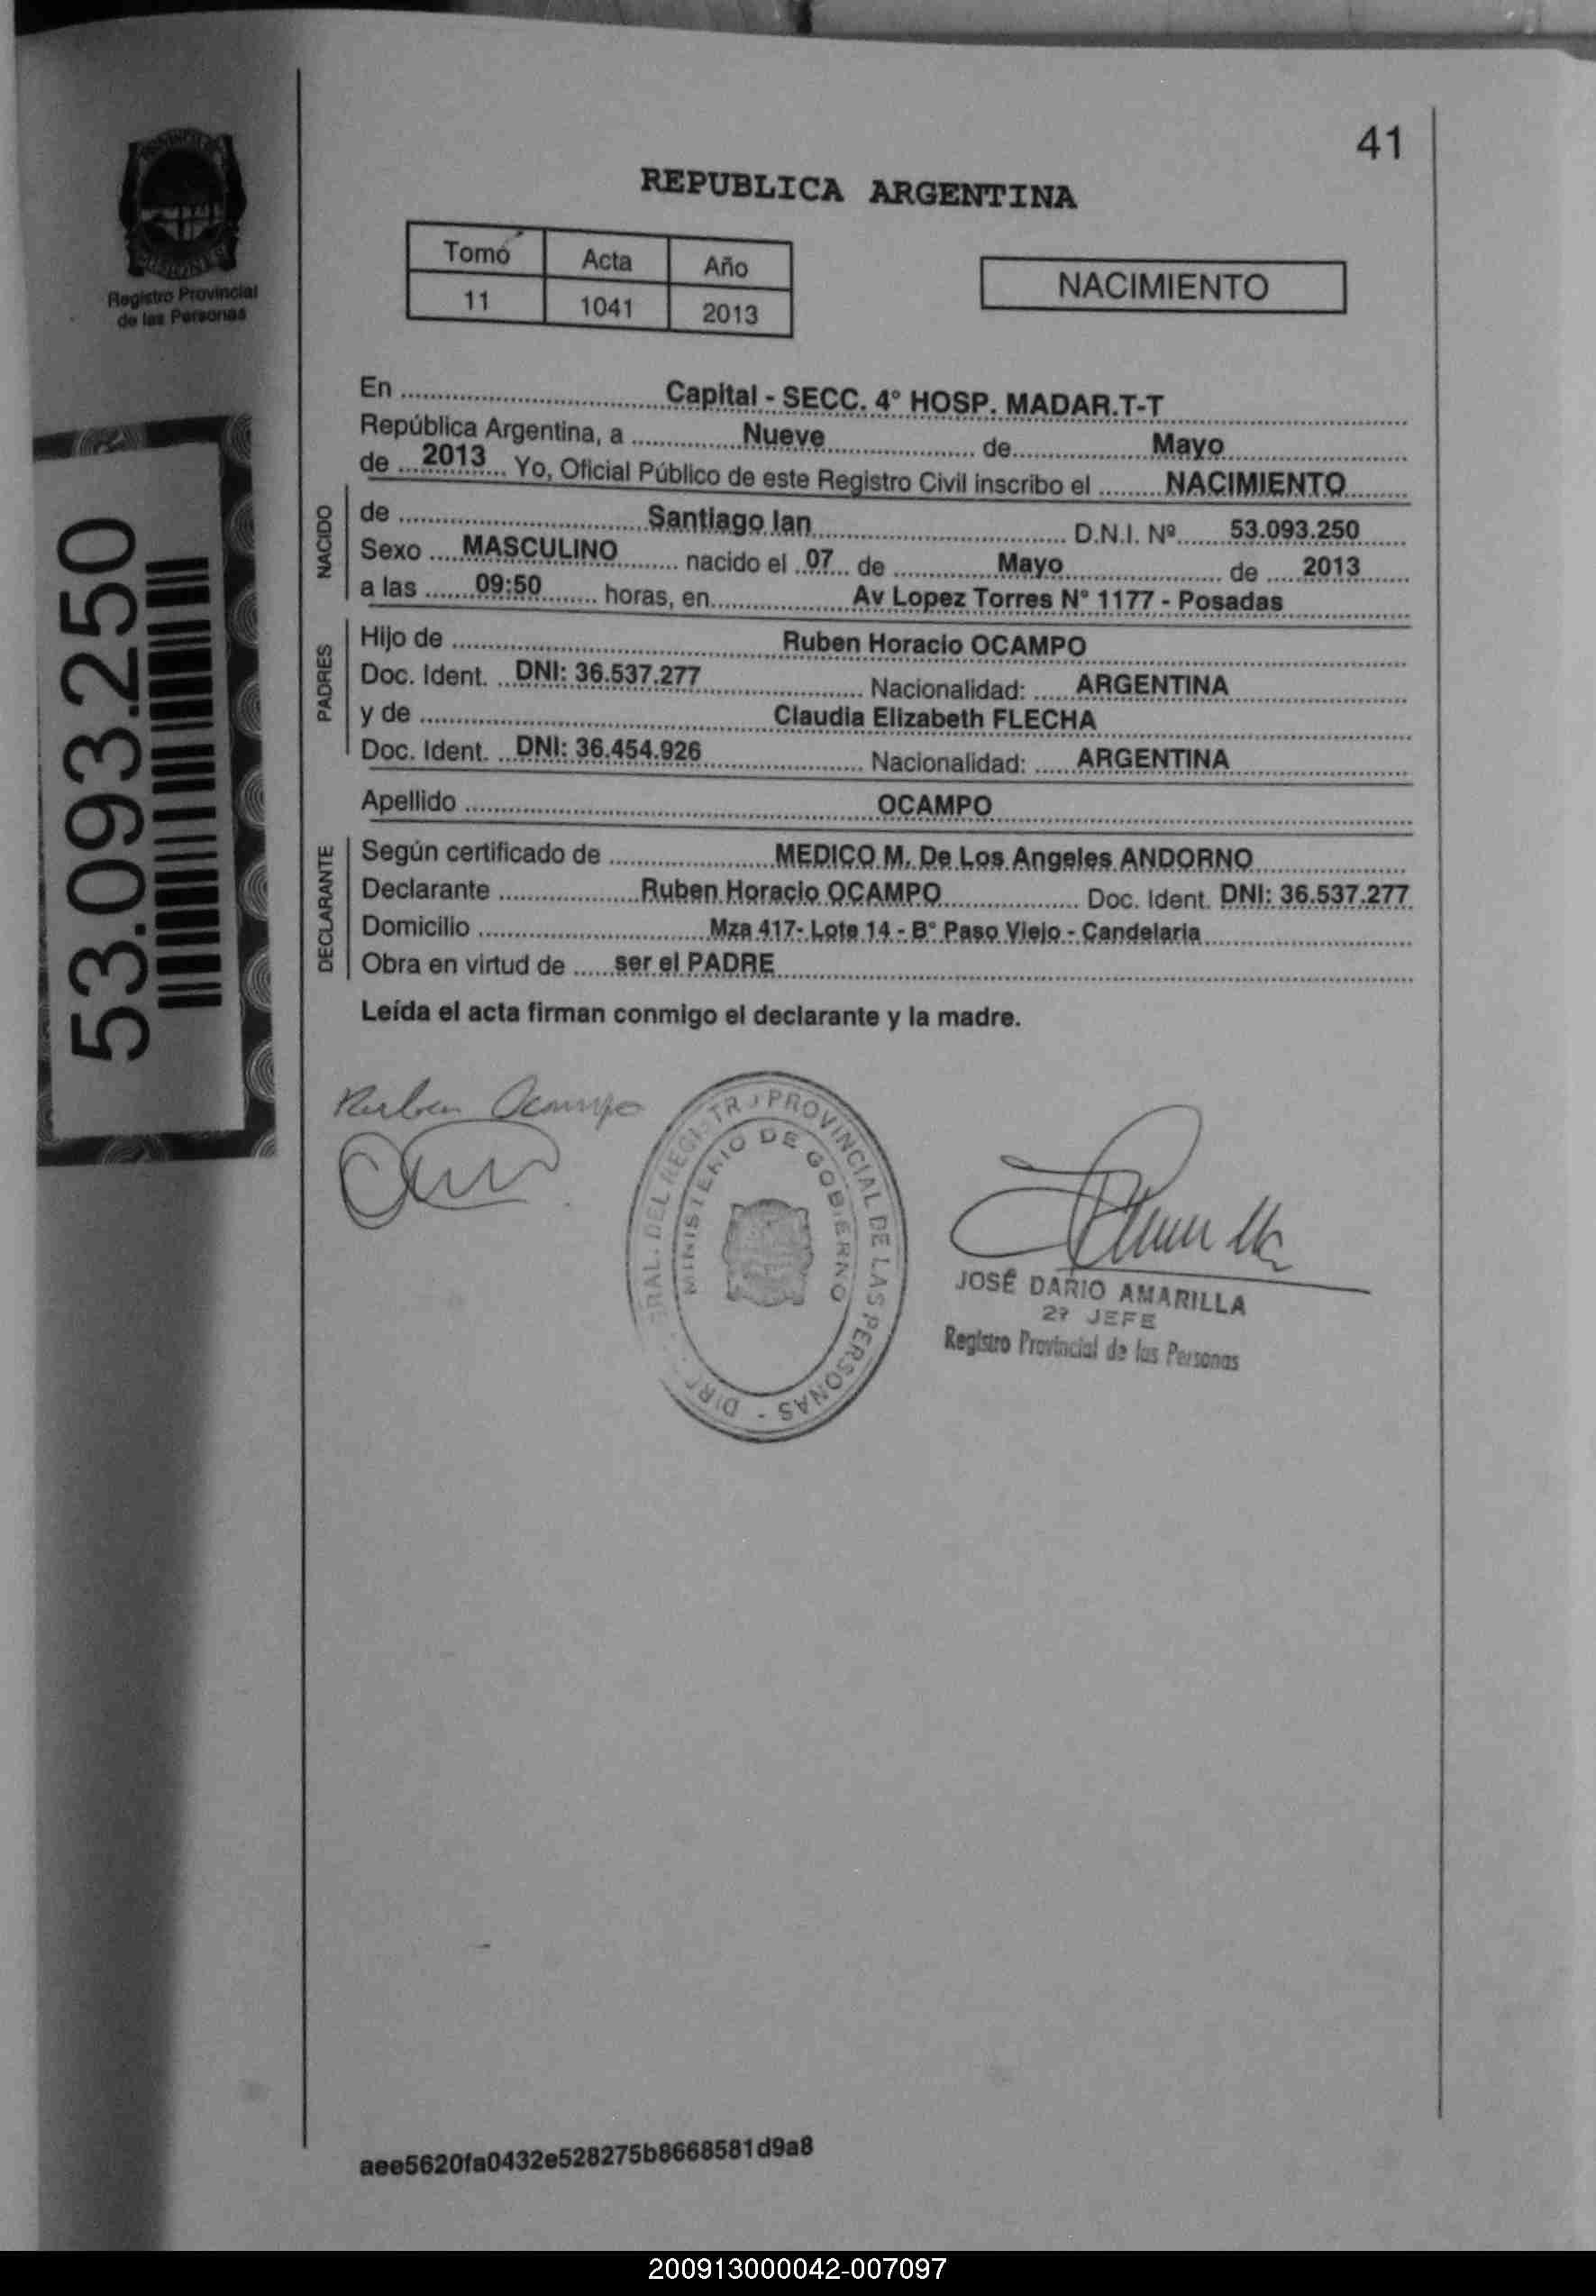 41
REPUBLICA ARGENTINA
PROVINCIA DE
MISIONES
Registro Provincial
de las Personas
Tomo Acta Año
11 1041 2013
NACIMIENTO
53.093.250
En Capital - SECC. 4° HOSP. MADAR.T-T
República Argentina, a Nueve de Mayo
de 2013 Yo, Oficial Público de este Registro Civil inscribo el NACIMIENTO
NACIDO
de Santiago Ian D.N.I. Nº 53.093.250
Sexo MASCULINO nacido el 07 de Mayo de 2013
a las 09:50 horas, en Av Lopez Torres N° 1177 - Posadas
PADRES
Hijo de Ruben Horacio OCAMPO
Doc. Ident. DNI: 36.537.277 Nacionalidad: ARGENTINA
y de Claudia Elizabeth FLECHA
Doc. Ident. DNI: 36.454.926 Nacionalidad: ARGENTINA
Apellido OCAMPO
DECLARANTE
Según certificado de MEDICO M. De Los Angeles ANDORNO
Declarante Ruben Horacio OCAMPO Doc. Ident. DNI: 36.537.277
Domicilio Mza 417- Lote 14 - B° Paso Viejo - Candelaria
Obra en virtud de ser el PADRE
Leída el acta firman conmigo el declarante y la madre.
Ruben Ocampo
GRAL. DEL REGISTRO PROVINCIAL DE LAS PERSONAS - DIR
MINISTERIO DE GOBIERNO
JOSÉ DARIO AMARILLA
2º JEFE
Registro Provincial de las Personas
aee5620fa0432e528275b8668581d9a8
200913000042-007097